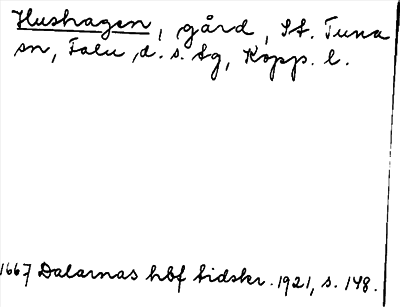 Hushagen, gård, St. Tuna
sn, Falu d. s. tg, Kopp. l.
1667 Dalarnas hbf tidskr. 1921, s. 148.